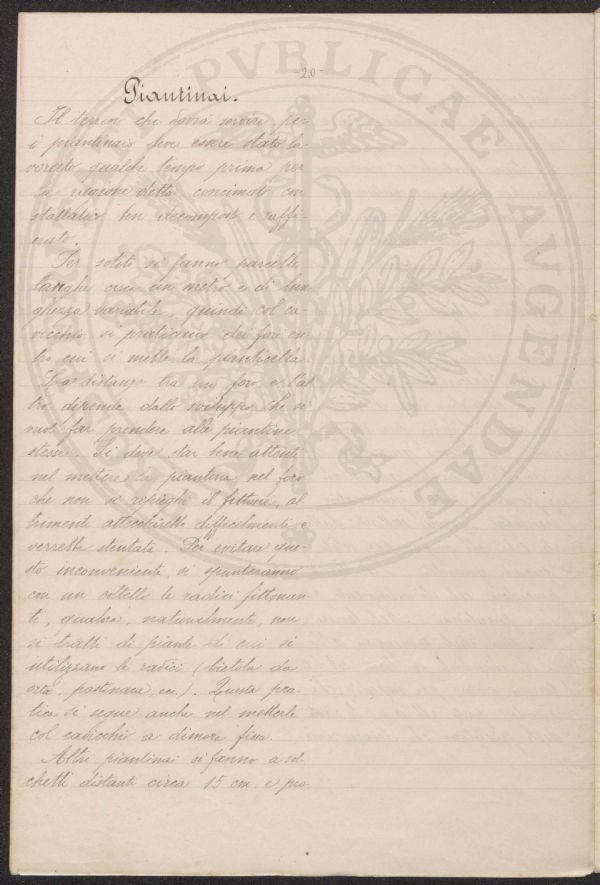 -20-
Piantinai.
Il terreno che dovrà servire per
i piantinaio deve essere stato la-
vorato qualche tempo prima per
la ragione detta concimato con
stallatico ben decomposto e
Per solito si fanno parcelle
larghe circa un metro e di lun-
ghezza variabile, quindi col ca-
vicchio si praticano dei fori en-
tro cui si mette la pianticella.
La distanza tra un foro e l'al-
tro dipende dallo sviluppo che si
vuol far prendere alle piantine
stesse. Si deve star bene attenti
nel mettere la piantina nel foro
che non si ripieghi il fittone, al-
trimenti attecchirebbe difficilmente e
verrebbe stentata. Per evitare que-
sto inconveniente, si spunteranno
con un coltello le radici fittonan-
ti, qualora, naturalmente, non
si tratti di piante di cui si
utilizzano le radici (bietola da
orto, pastinaca, ecc.). Questa pra-
tica si segue anche nel metterle
col cavicchio a dimora fissa.
Altri piantinai si fanno a sol-
chetti distanti circa 15 cm. e pro-
PVBLICAE AVGENDAE